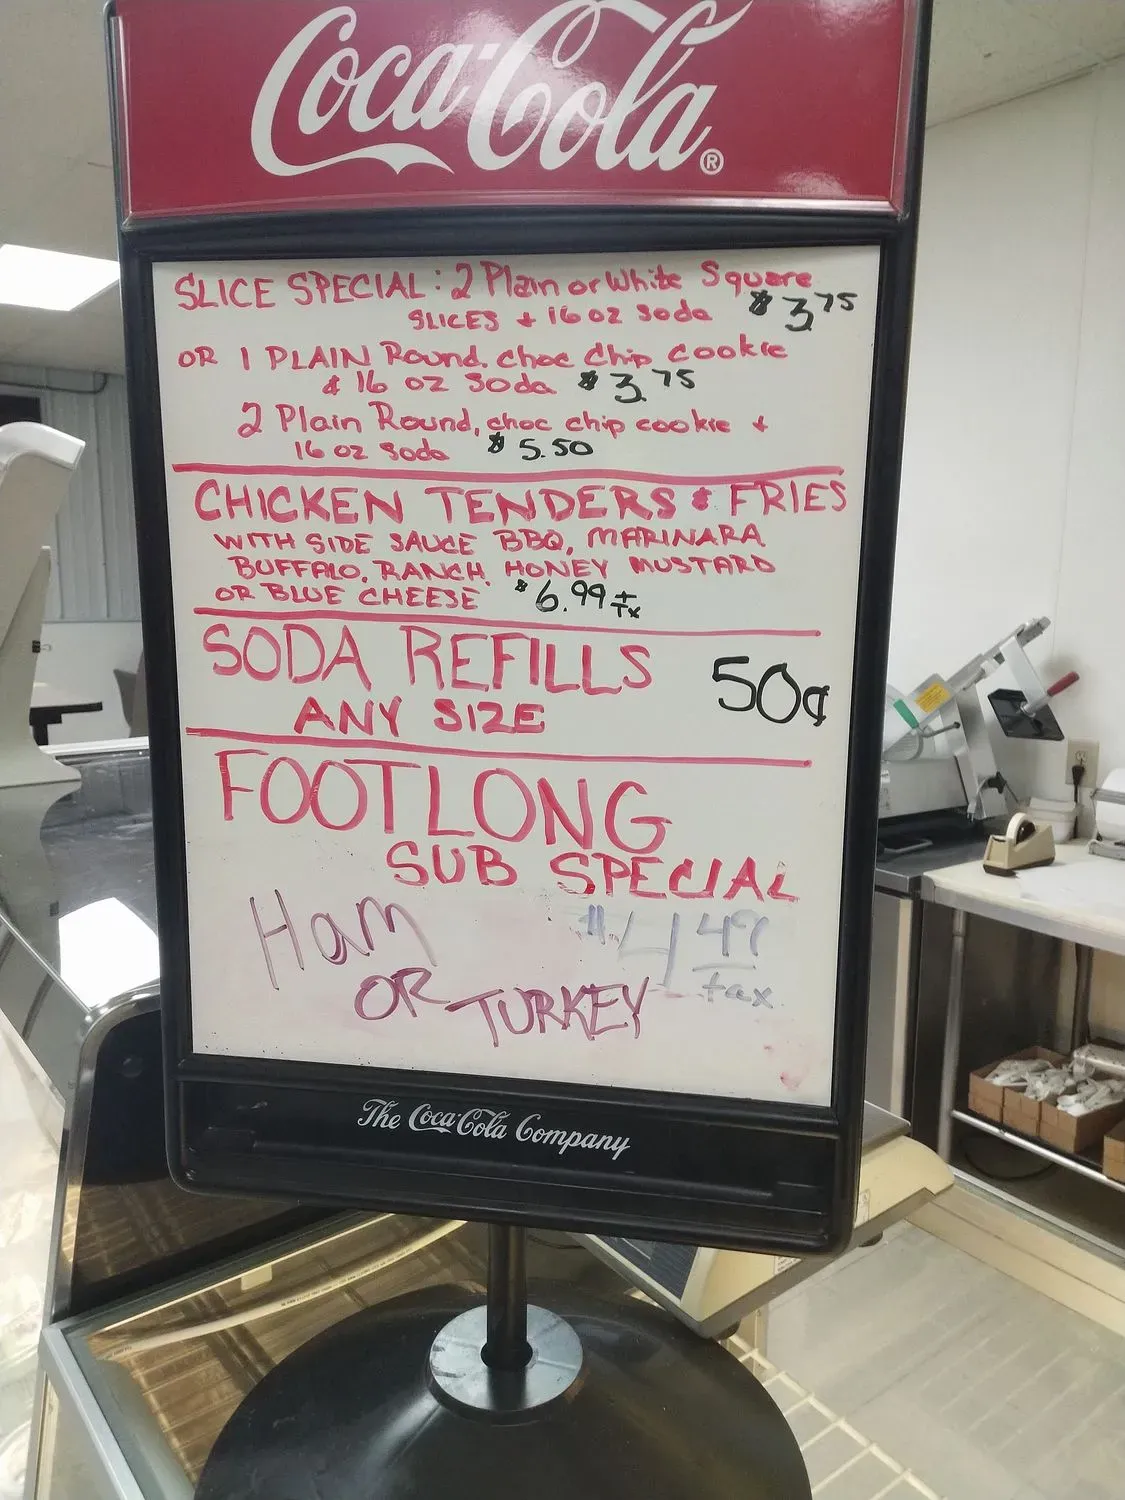 Coca-Cola®
SLICE SPECIAL: 2 Plain or White Square
SLICES + 16 oz Soda $3.75
OR 1 PLAIN Round, choc chip cookie
& 16 oz Soda $3.75
2 Plain Round, choc chip cookie +
16 oz Soda $5.50
CHICKEN TENDERS & FRIES
WITH SIDE SAUCE BBQ, MARINARA
BUFFALO, RANCH, HONEY MUSTARD
OR BLUE CHEESE $6.99 + Tx
SODA REFILLS 50¢
ANY SIZE
FOOTLONG
SUB SPECIAL
Ham $4.49
OR TURKEY tax
The Coca-Cola Company